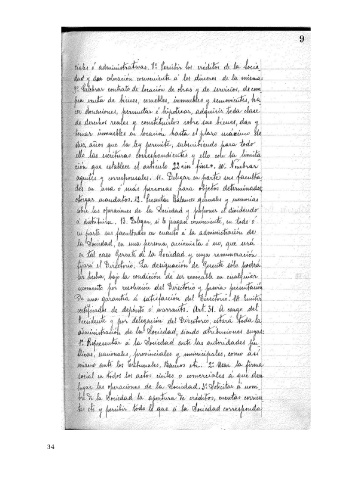 9
ciales ó administrativas. 8º Percibir los créditos de la Socie
dad y dar colocación conveniente á los dineros de la misma
9º Celebrar contrato de locación de obras y de servicios, de com
pra venta de bienes, muebles, inmuebles y semovientes, ha
cer donaciones, permutar é hipotecar, adquirir toda clase
de derechos reales y constituirlos sobre sus bienes, dar y
tomar inmuebles en locación hasta el plazo máximo de
diez años que la ley permite, subscribiendo para todo
ello las escrituras correspondientes y ello con la limita
ción que establece el artículo 22 10. Nombrar
agentes y corresponsales. 11. Delegar en parte sus faculta
des en una ó más personas para objetos determinados,
otorgar mandatos. 12. Presentar balances anuales y memorias
sobre las operaciones de la Sociedad y proponer el dividendo
á distribuirse. 13. Delegar, si lo juzgase conveniente, en todo ó
en parte sus facultades en cuanto á la administración de
la Sociedad, en una persona, accionista ó no, que será
en tal caso Gerente de la Sociedad y cuya remuneración
fijará el Directorio. La designación de Gerente sólo podrá
ser hecha, bajo la condición de ser revocable en cualquier
momento por resolución del Directorio y previa prestación
de una garantía á satisfacción del Directorio. 14. Emitir
certificados de depósito ó warrants. Art. 31. A cargo del
Presidente y por delegación del Directorio, estará toda la
administración de la Sociedad, siendo atribuciones suyas:
1º Representar á la Sociedad ante las autoridades pú
blicas, nacionales, provinciales y municipales, como así
mismo ante los tribunales, Bancos etc. 2º Usar la firma
social en todos los actos civiles ó comerciales á que den
lugar las operaciones de la Sociedad. 3º Solicitar á nom
bre de la Sociedad la apertura de créditos, cuentas corrien
tes etc y percibir todo lo que á la Sociedad corresponda
34